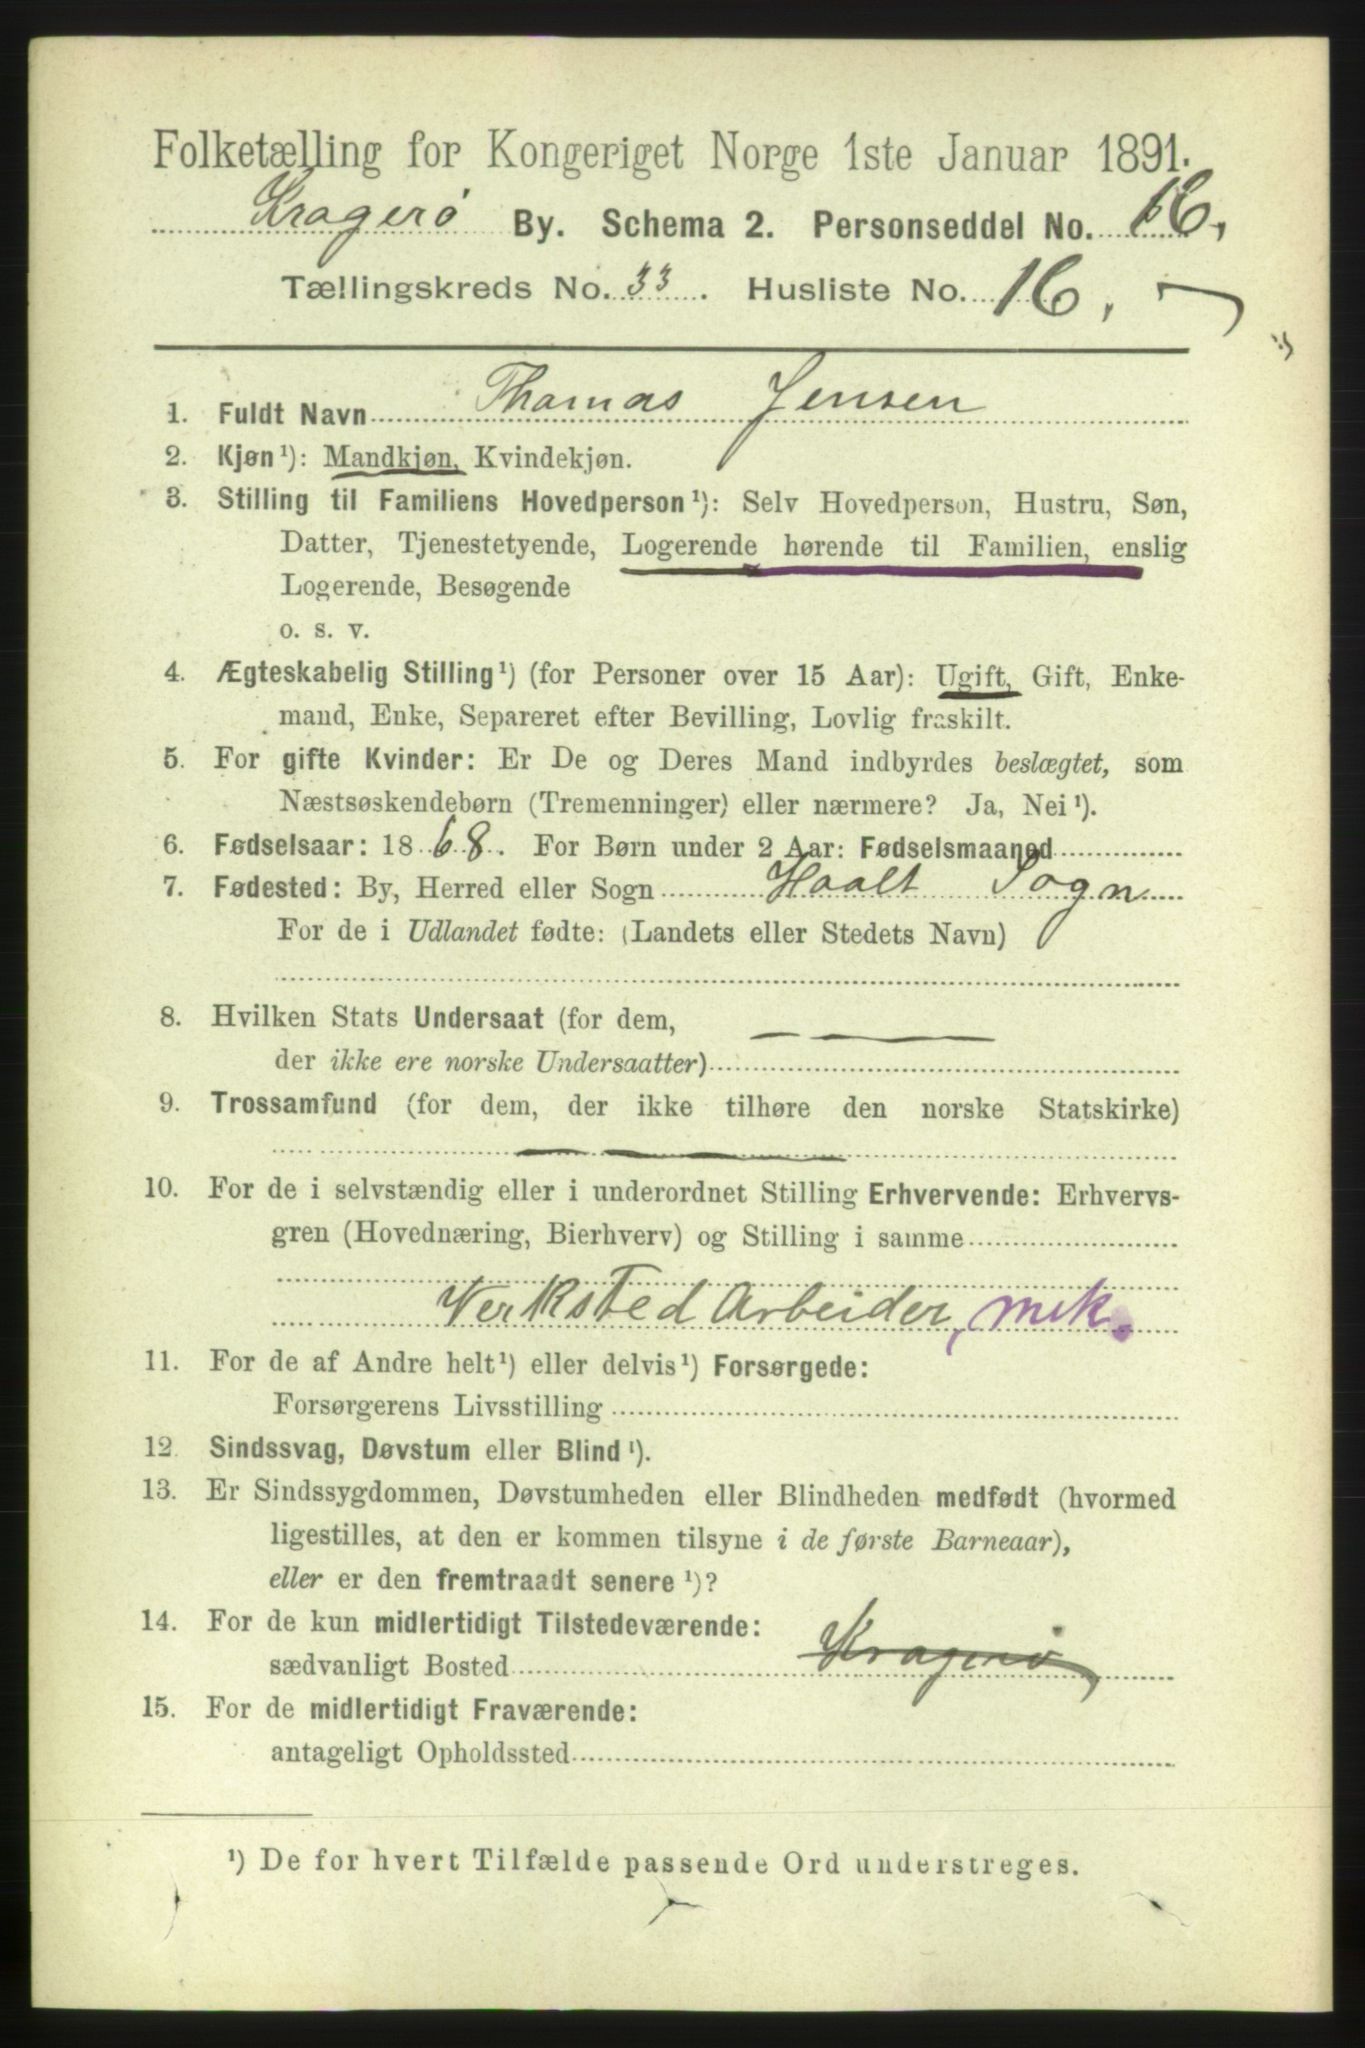 Folketælling for Kongeriget Norge 1ste Januar 1891.
Kragerø By. Schema 2. Personseddel No. 16,
Tællingskreds No. 33. Husliste No. 16,
1. Fuldt Navn Thomas Jensen
2. Kjøn¹): Mandkjøn, Kvindekjøn.
3. Stilling til Familiens Hovedperson¹): Selv Hovedperson, Hustru, Søn,
Datter, Tjenestetyende, Logerende hørende til Familien, enslig
Logerende, Besøgende
o. s. v.
4. Ægteskabelig Stilling¹) (for Personer over 15 Aar): Ugift, Gift, Enke-
mand, Enke, Separeret efter Bevilling, Lovlig fraskilt.
5. For gifte Kvinder: Er De og Deres Mand indbyrdes beslægtet, som
Næstsøskendebørn (Tremenninger) eller nærmere? Ja, Nei¹).
6. Fødselsaar: 1868. For Børn under 2 Aar: Fødselsmaaned
7. Fødested: By, Herred eller Sogn Haalt Sogn
For de i Udlandet fødte: (Landets eller Stedets Navn)
8. Hvilken Stats Undersaat (for dem,
der ikke ere norske Undersaatter)
9. Trossamfund (for dem, der ikke tilhøre den norske Statskirke)
10. For de i selvstændig eller i underordnet Stilling Erhvervende: Erhvervs-
gren (Hovednæring, Bierhverv) og Stilling i samme
Verksted Arbeider, mek.
11. For de af Andre helt¹) eller delvis¹) Forsørgede:
Forsørgerens Livsstilling
12. Sindssvag, Døvstum eller Blind¹).
13. Er Sindssygdommen, Døvstumheden eller Blindheden medfødt (hvormed
ligestilles, at den er kommen tilsyne i de første Barneaar),
eller er den fremtraadt senere¹)?
14. For de kun midlertidigt Tilstedeværende:
sædvanligt Bosted Kragerø
15. For de midlertidigt Fraværende:
antageligt Opholdssted
¹) De for hvert Tilfælde passende Ord understreges.